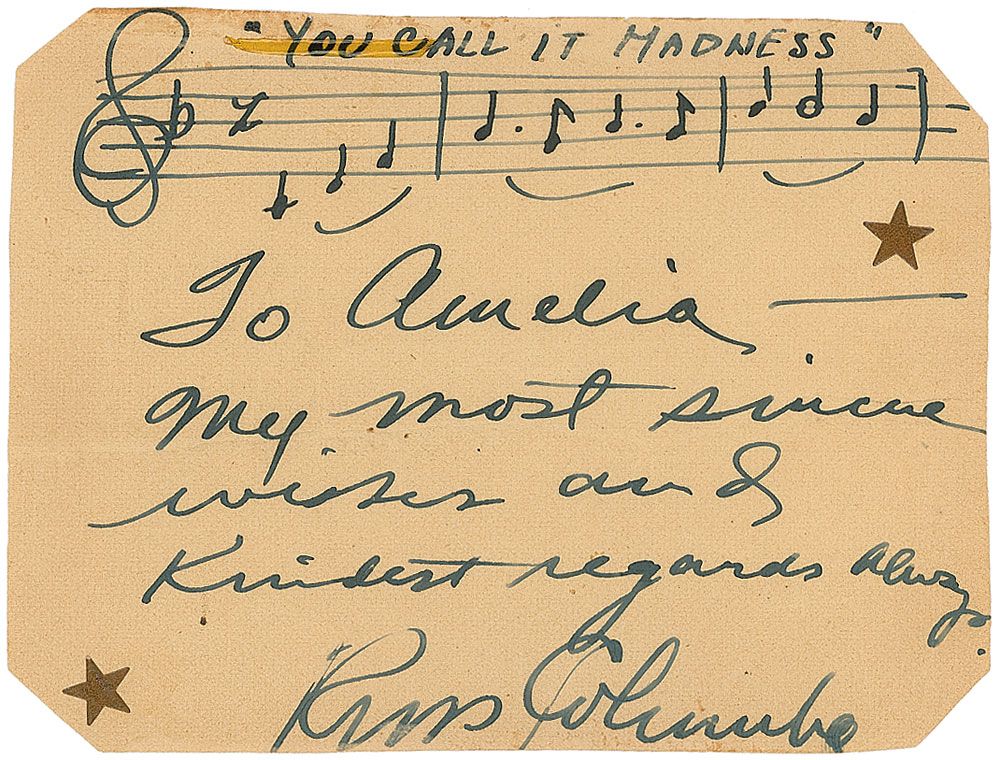 "YOU CALL IT MADNESS"
To Amelia —
My most sincere
wishes and
Kindest regards Always.
Russ Columbo